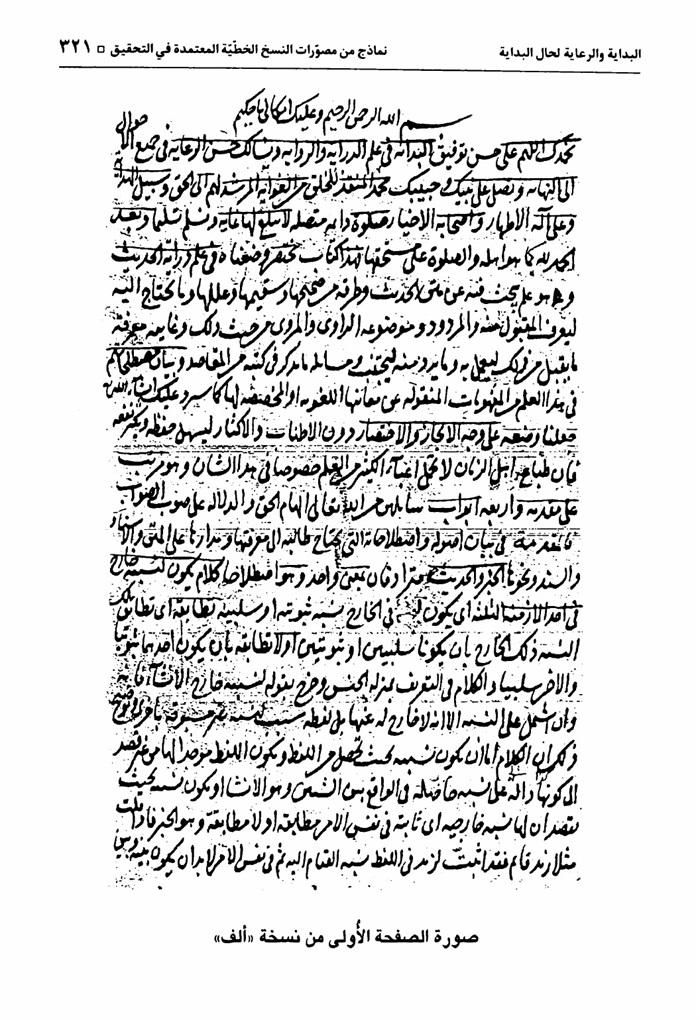 البداية والرعاية لحال البداية
نماذج من مصوّرات النسخ الخطّيّة المعتمدة في التحقيق □ ٣٢١
بسم الله الرحمن الرحيم وعليك اتكالي يا حكيم
نحمدك اللهم على حسن توفيق البداية في علم الدراية والرواية ونسألك حسن الرعاية في جميع الأحوال
الى النهاية ونصلي على نبيك وحبيبك محمد المنقذ للخلق من الغواية المرشد لهم الى الحق وسبيل الهداية
وعلى آله الاطهار واصحابه الاخيار صلوة دائمة متصلة لا تبلغ لها غاية ونسلم تسليما وبعد
الحمد لله كما هو اهله والصلوة على مستحقها فهذا كتاب مختصر وضعناه في علم دراية الحديث
وهو علم يبحث فيه عن متن الحديث وطرقه من صحيحها وسقيمها وعللها وما يحتاج اليه
ليعرف المقبول منه والمردود وموضوعه الراوي والمروي من حيث ذلك وغايته معرفة
ما يقبل من ذلك ليعمل به وما يرد منه ليجتنب ومسائله ما يذكر في كتبه من المقاصد وبيان مصطلحاتهم
في هذا العلم من المفهومات المنقولة عن معانيها اللغوية او المخصصة لها كما سيرد عليك ان شاء الله
جعلنا وضعه على وجه الايجاز والاختصار دون الاطناب والاكثار ليسهل حفظه ويكثر نفعه
فان طباع اهل الزمان لا تحتمل اعباء الكثير من العلم خصوصا في هذا الشان وهو مرتب
على مقدمة وابواب اربعة سائلين من الله تعالى الهام الحق والدلالة على صوب الصواب
فالمقدمة في بيان اصوله واصطلاحاته التي يحتاج طالبه الى معرفتها ومدارها على المتن
والسند ونحوها الخبر والحديث مترادفان بمعنى واحد وهو اصطلاحا كلام يكون لنسبته خارج
في احد الازمنة الثلثة اي يكون له في الخارج نسبة ثبوتية او سلبية تطابقه اي تطابق تلك
النسبة ذلك الخارج بان يكونا سلبيين او ثبوتيين او لا تطابقه بان يكون احدهما ثبوتيا
والآخر سلبيا والكلام في التعريف بمنزلة الجنس وخرج بقوله لنسبته خارج الانشاء فانه
وان اشتمل على النسبة الا انه لا خارج له عنها بل لفظه سبب
ذلك ان الكلام اما ان يكون نسبته بحيث تحصل من اللفظ ويكون اللفظ موجدا لها من غير قصد
الى كونها دالة على نسبة حاصلة في الواقع بين الشيئين وهو الانشا او يكون نسبته بحيث
يقصد ان لها نسبة خارجية اي ثابتة في نفس الامر مطابقة او لا مطابقة وهو الخبر فاذا قلت
مثلا زيد قائم فقد اثبت لزيد في اللفظ نسبة القيام اليه ثم في نفس الامر لا بد ان يكون بينه وبين
صورة الصفحة الأُولى من نسخة «ألف»